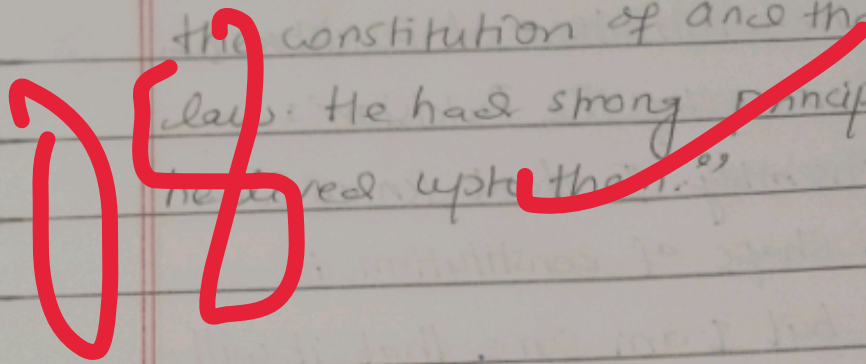 the constitution of and the
law. He had strong princip
he lived upto them."
08